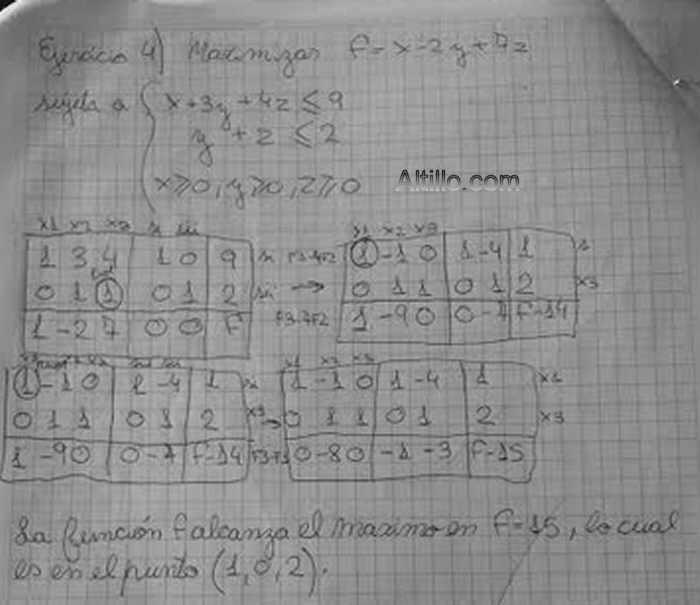 Ejercicio 4) Maximizar f = x - 2y + 7z
sujeta a { x + 3y + 4z ≤ 9
y + z ≤ 2
x ≥ 0, y ≥ 0, z ≥ 0
Altillo.com
x1 x2 x3
1 3 4 1 0 9
0 1 1 0 1 2
1 -2 7 0 0 F
F1-4F2
F3-7F2
x1 x2 x3
1 -1 0 1 -4 1
0 1 1 0 1 2 x3
1 -9 0 0 -7 F-14
1 -1 0 1 -4 1
0 1 1 0 1 2 x3
1 -9 0 0 -7 F-14 F3-F1
x1 x2 x3
1 -1 0 1 -4 1 x1
0 1 1 0 1 2 x3
0 -8 0 -1 -3 F-15
La función f alcanza el maximo en f=15, lo cual
es en el punto (1,0,2).